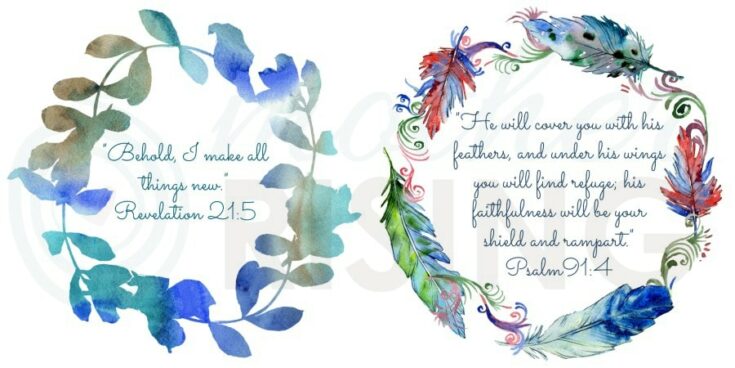 "Behold, I make all
things new."
Revelation 21:5
"He will cover you with his
feathers, and under his wings
you will find refuge; his
faithfulness will be your
shield and rampart."
Psalm91:4
RISING